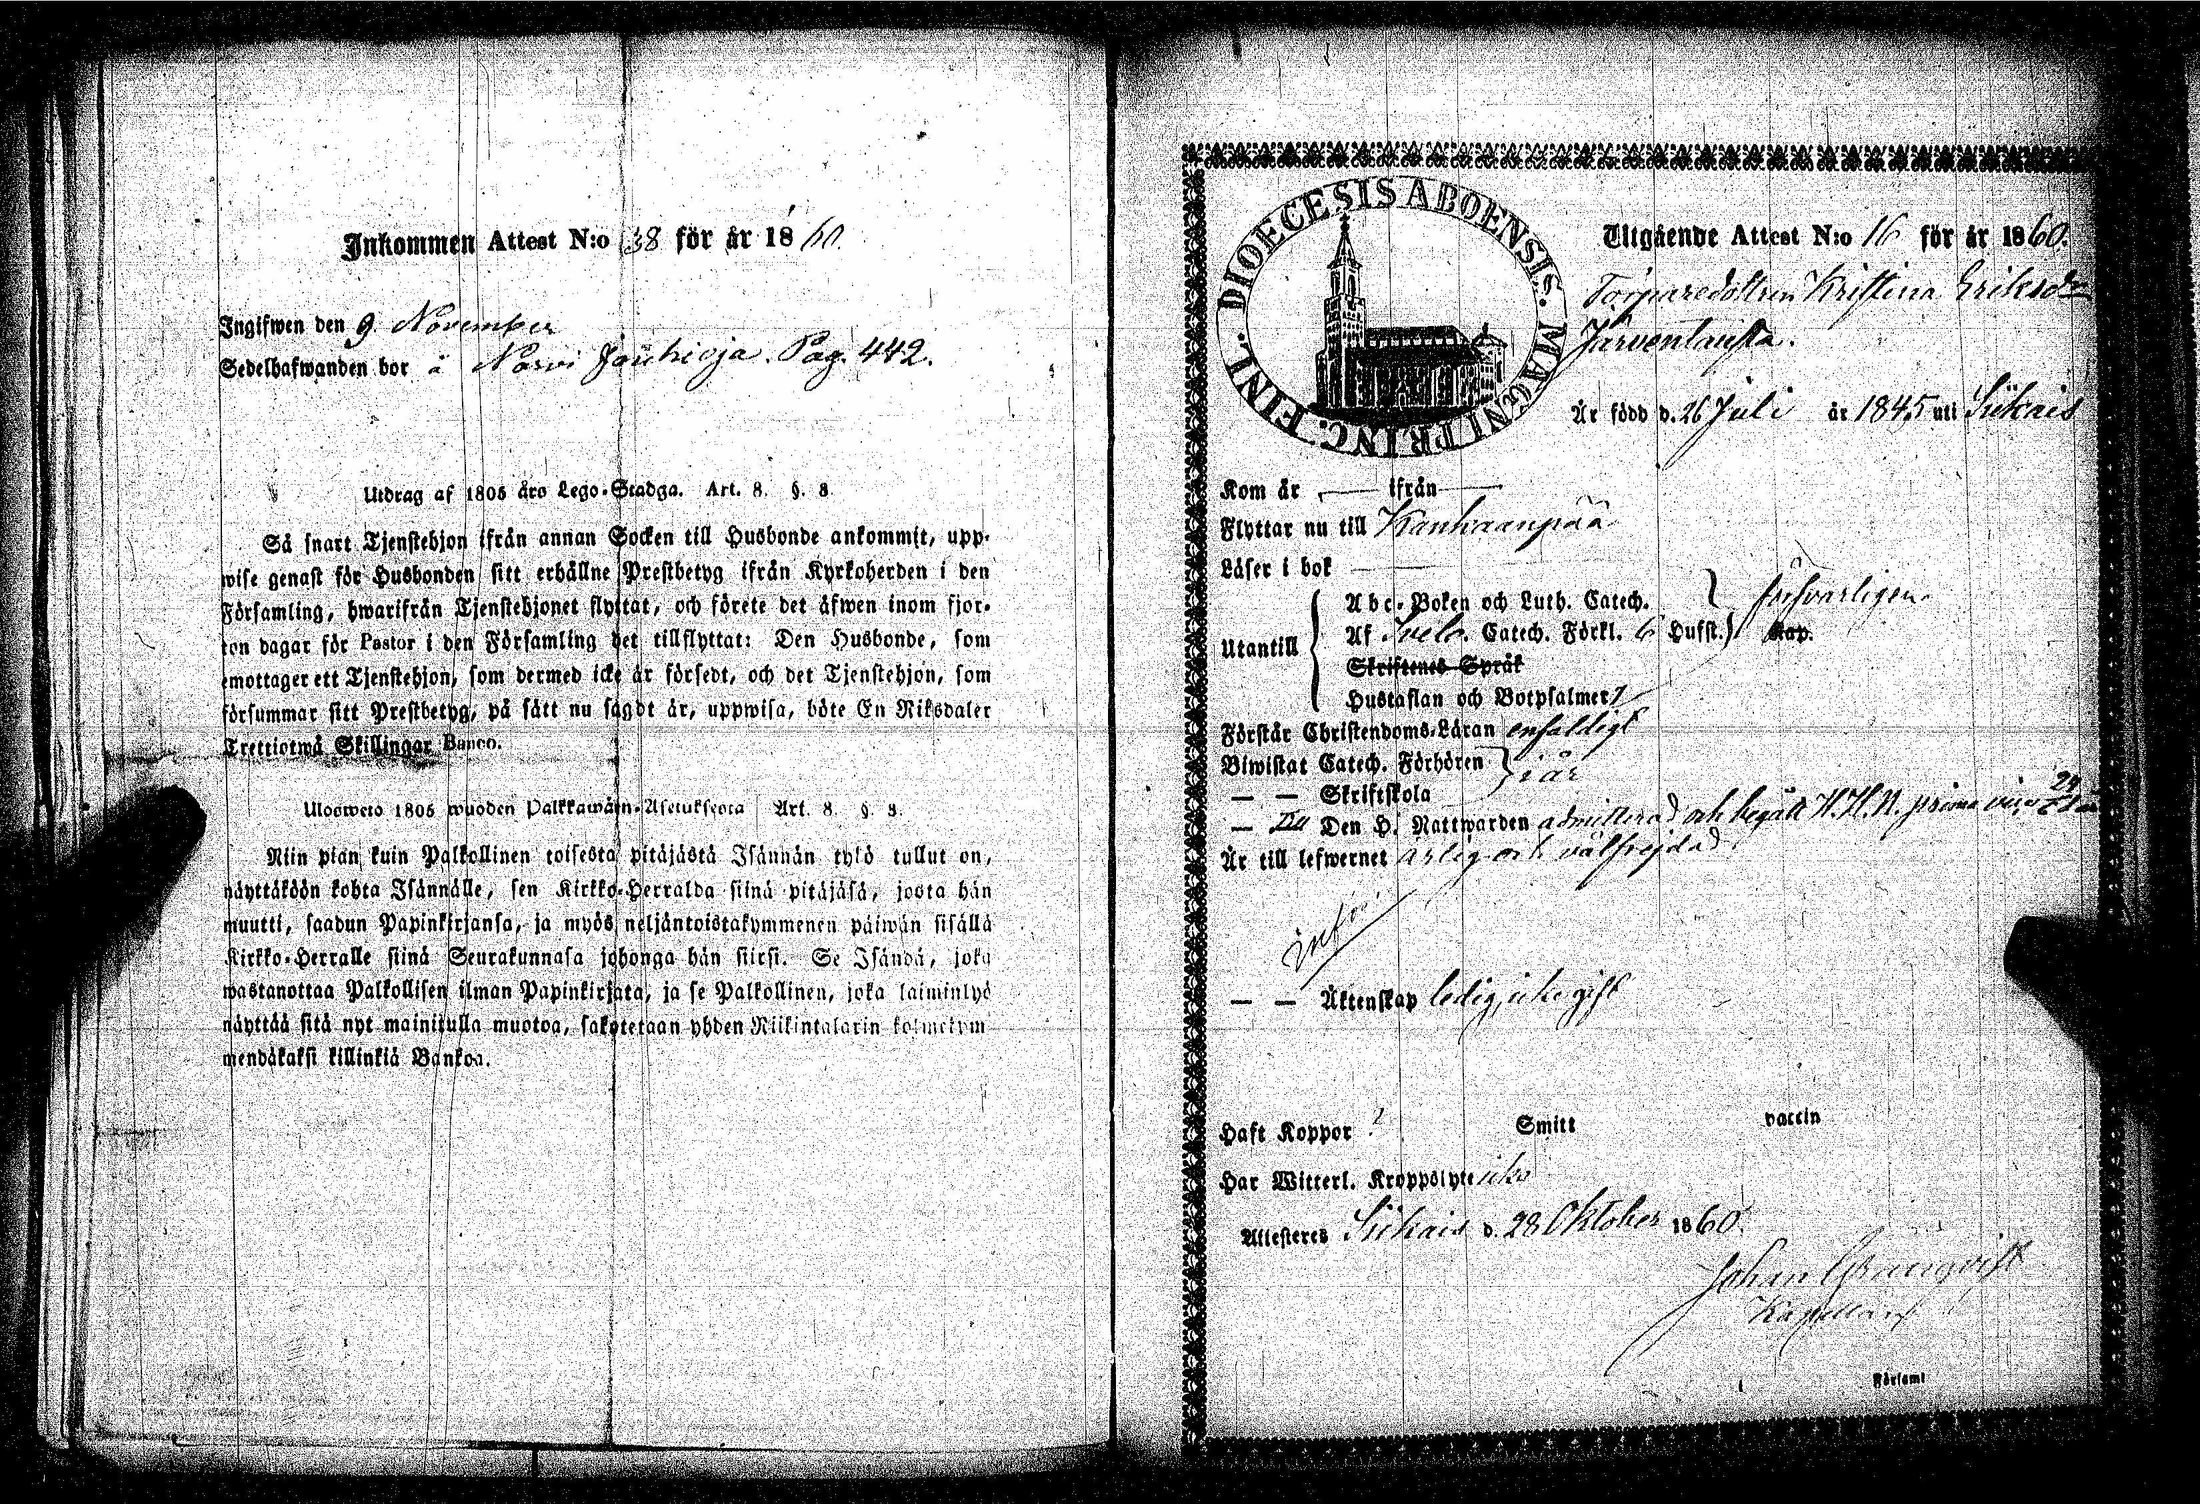 Inkommen Attest N:o 38 för år 1860
Ingifwen den 9 November
Sedelhafwanden bor å Narvi Jauhioja. Pag. 442.
Utdrag af 1805 års Lego-Stadga. Art. 8. §. 8.
Så snart Tjenstehjon ifrån annan Socken till Husbonde ankommit, upp-
wise genast för Husbonden sitt erhållne Prestbetyg ifrån Kyrkoherden i den
Församling, hwarifrån Tjenstehjonet flyttat, och förete det äfwen inom fjor-
ton dagar för Pastor i den Församling det tillflyttat: Den Husbonde, som
emottager ett Tjenstehjon, som dermed icke är försedt, och det Tjenstehjon, som
försummar sitt Prestbetyg, på sätt nu sagdt är, uppwisa, böte En Riksdaler
Trettiotwå Skillingar Banco.
Ulosweto 1805 wuoden Palkkawäen-Asetuksesta Art. 8. §. 8.
Niin pian kuin Palkollinen toisesta pitäjästä Isännän tykö tullut on,
näyttäköön kohta Isännälle, sen Kirkko-Herralda siinä pitäjäsä, josta hän
muutti, saadun Papinkirjansa, ja myös neljäntoistakymmenen päiwän sisällä
Kirkko-Herralle siinä Seurakunnasa johonga hän siirsi. Se Isändä, joka
wastanottaa Palkollisen ilman Papinkirjata, ja se Palkollinen, joka laiminlyö
näyttää sitä nyt mainitulla muotoa, sakotetaan yhden Riikintalarin kolmekym
mendäkaksi killinkiä Bankoa.
DIOECESIS ABOENSIS. MAGNI PRINC. FINL.
Utgående Attest N:o 16 för år 1860.
Torparedottren Kristina Eriksdr
Järventausta.
Är född d. 26 Juli år 1845 uti Siikais
Kom år — ifrån —
Flyttar nu till Kankaanpää
Läser i bok
Utantill
Abc-Boken och Luth. Catech. försvarligen
Af Svebi. Catech. Förkl. 6 Hufst. Kap.
Skriftenes Språk
Hustaflan och Botpsalmer 7
Förstår Christendoms-Läran enfaldigt
Biwistat Catech. Förhören i år
— — Skriftskola
— Till Den H. Nattwarden admitterad och begått H. H. N. prima vice
Är till lefwernet ärlig och välfrejdad
— — Äktenskap ledig, icke gift
Haft Koppor ? Smitt vaccin
Har Witterl. Kroppslyte icke
Attesteres Siikais d. 28 Oktober 1860.
Johan Granqvist
Kapellan
Församl